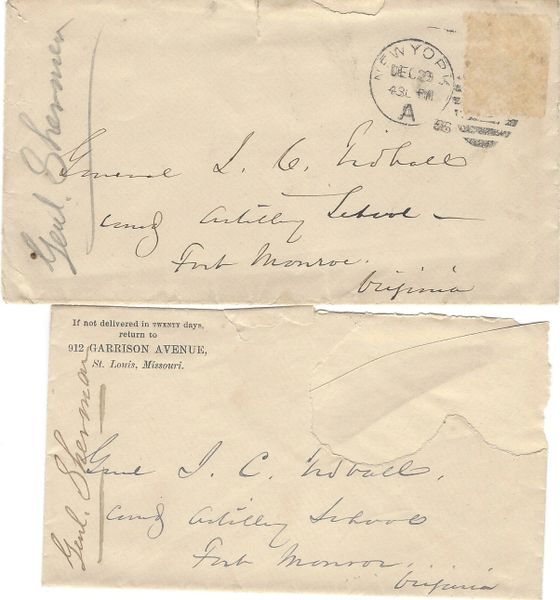 Genl. Sherman
NEW YORK
DEC 29
430 PM
A
General J. C. Tidball
comdg Artillery School
Fort Monroe.
Virginia
If not delivered in TWENTY days,
return to
912 GARRISON AVENUE,
St. Louis, Missouri.
Genl. Sherman
Genl J. C. Tidball,
comdg Artillery School
Fort Monroe.
Virginia